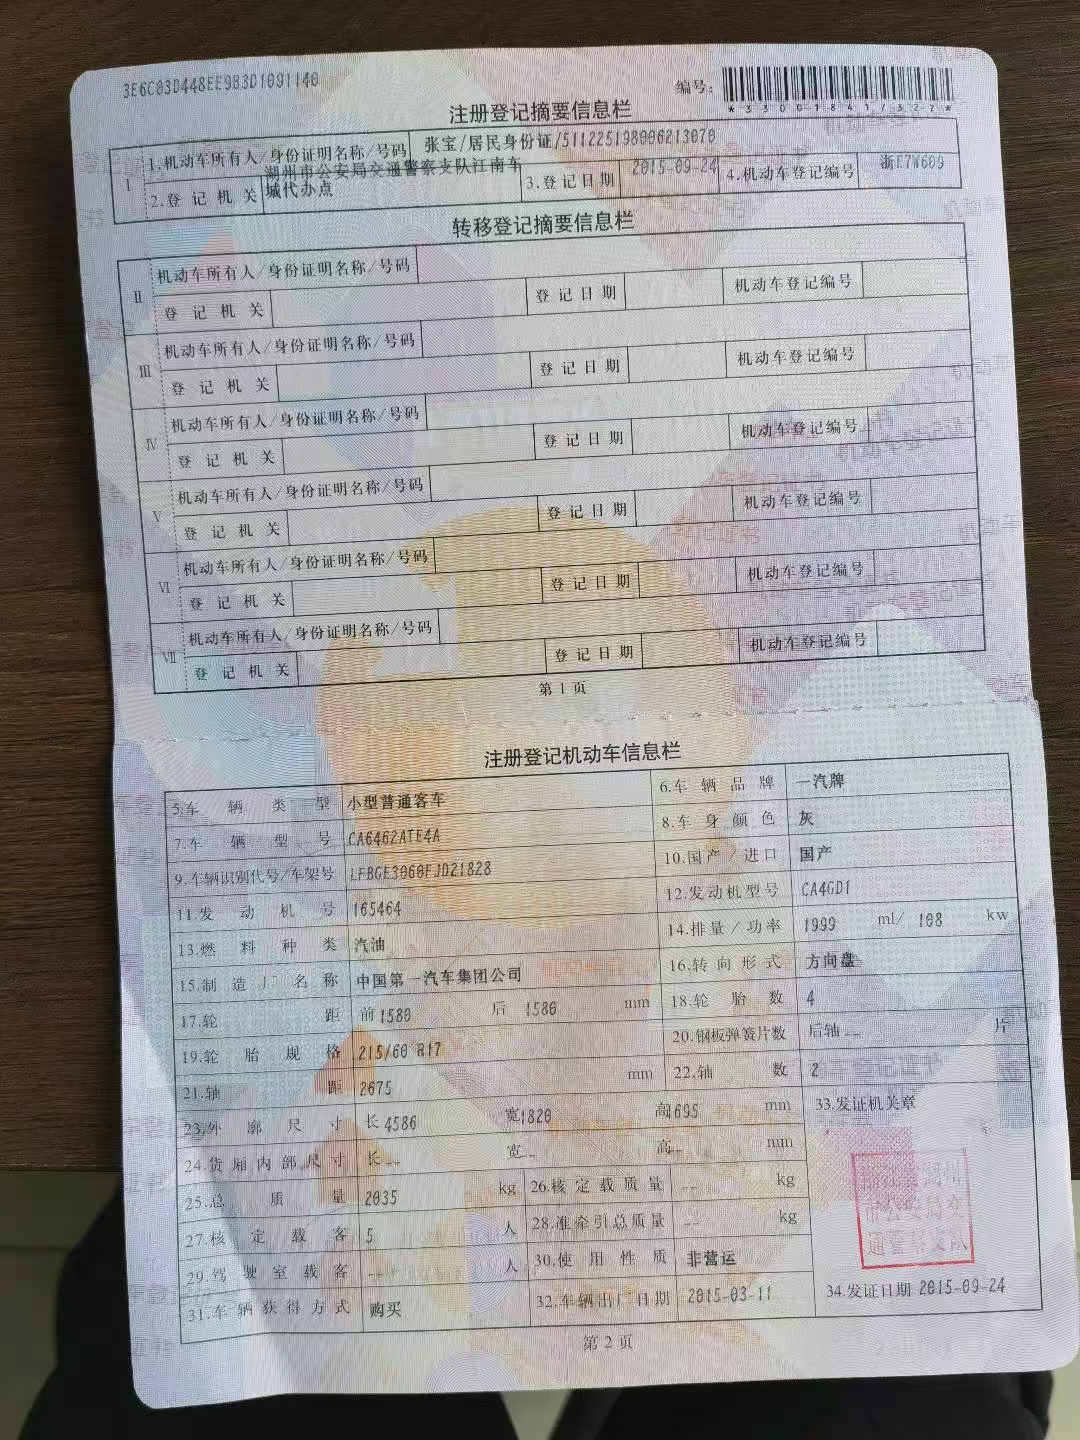 3E6C03D448EE9B3D1091140
编号：
*330018417327*
注册登记摘要信息栏
I 1.机动车所有人/身份证明名称/号码 张宝/居民身份证/511225198006213070
2.登记机关 湖州市公安局交通警察支队江南车城代办点 3.登记日期 2015-09-24 4.机动车登记编号 浙E7W609
转移登记摘要信息栏
II 机动车所有人/身份证明名称/号码
登记机关 登记日期 机动车登记编号
III 机动车所有人/身份证明名称/号码
登记机关 登记日期 机动车登记编号
IV 机动车所有人/身份证明名称/号码
登记机关 登记日期 机动车登记编号
V 机动车所有人/身份证明名称/号码
登记机关 登记日期 机动车登记编号
VI 机动车所有人/身份证明名称/号码
登记机关 登记日期 机动车登记编号
VII 机动车所有人/身份证明名称/号码
登记机关 登记日期 机动车登记编号
第1页
注册登记机动车信息栏
5.车辆类型 小型普通客车 6.车辆品牌 一汽牌
7.车辆型号 CA6462ATE4A 8.车身颜色 灰
9.车辆识别代号/车架号 LFBGE3060FJD21828 10.国产/进口 国产
11.发动机号 165464 12.发动机型号 CA4GD1
13.燃料种类 汽油 14.排量/功率 1999 ml/ 108 kw
15.制造厂名称 中国第一汽车集团公司 16.转向形式 方向盘
17.轮距 前1580 后 1580 mm 18.轮胎数 4
19.轮胎规格 215/60 R17 20.钢板弹簧片数 后轴-- 片
21.轴距 2675 mm 22.轴数 2
23.外廓尺寸 长 4586 宽1820 高1695 mm 33.发证机关章
24.货厢内部尺寸 长-- 宽-- 高-- mm
25.总质量 2035 kg 26.核定载质量 -- kg
27.核定载客 5 人 28.准牵引总质量 -- kg
29.驾驶室载客 -- 人 30.使用性质 非营运
31.车辆获得方式 购买 32.车辆出厂日期 2015-03-11 34.发证日期 2015-09-24
浙江省湖州
市公安局交
通警察支队
第2页